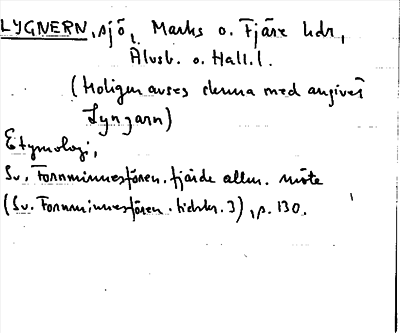 LYGNERN, sjö, Marks o. Fjäre hdr,
Älvsb. o. Hall. l.
(Troligen avses denna med angivet
Lyngarn)
Etymologi,
Sv. Fornminnesfören. fjärde allm. möte
(Sv. Fornminnesfören. tidskr. 3), p. 130.